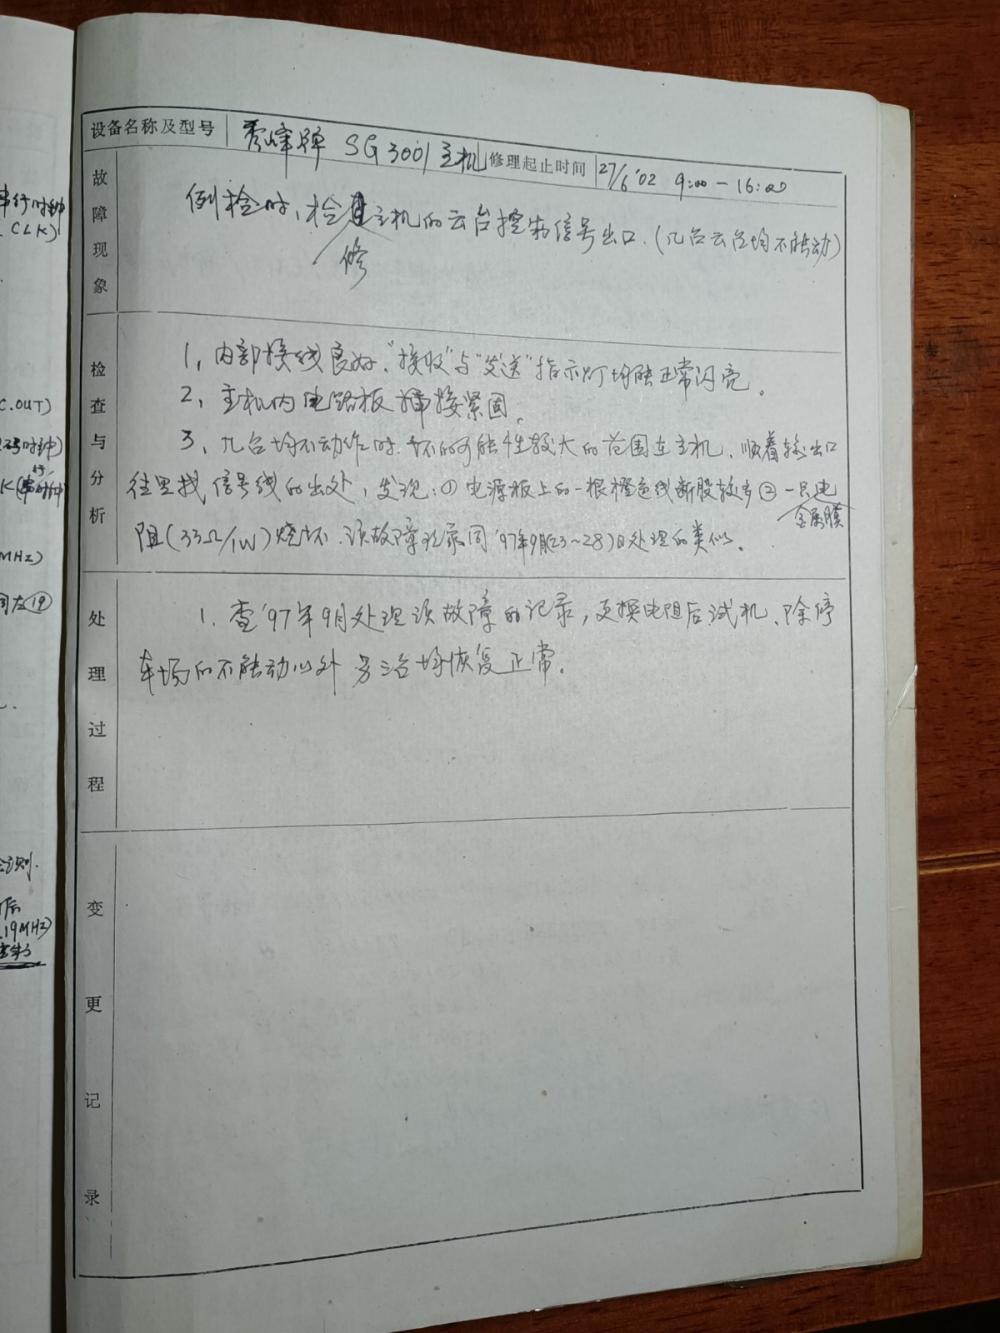 设备名称及型号 秀峰牌 SG3001主机 修理起止时间 27/6'02 9:00-16:00
故障现象
例检时,检修主机的云台控制信号出口.(几台云台均不能动)
检查与分析
1,内部接线良好."接收"与"发送"指示灯均能正常闪亮。
2,主机内电路板焊接紧固。
3,九台均不动作时.坏的可能性较大的范围在主机.顺着输出口
往里找信号线的出处,发现:①电源板上的一根橙色线断股较多②一只金属膜电
阻(33Ω/1W)烧坏.该故障现象同'97年9月(23~28)日处理的类似。
处理过程
1.查'97年9月处理该故障的记录,更换电阻后试机.除停
车场的不能动以外 另三台均恢复正常。
变更记录
串行时钟
CLK)
C.OUT)
时钟)
K(
MHz)
⑲
则.
后
.19MHz)